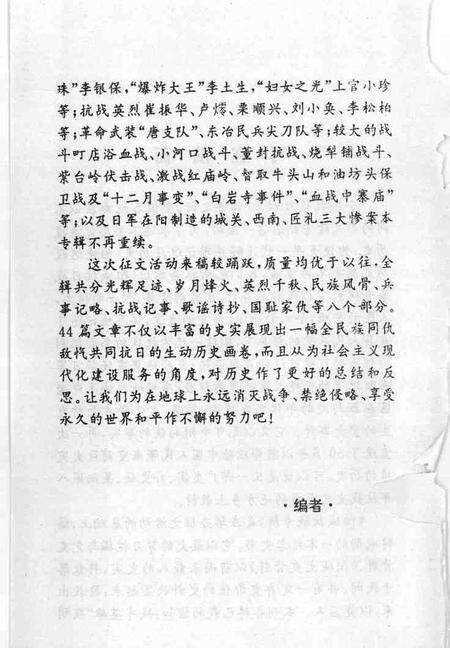 珠”李银保，“爆炸大王”李土生，“妇女之光”上官小珍
等；抗战英烈崔振华、卢熠、栗顺兴、刘小奂、李松柏
等；革命武装“唐支队”、东冶民兵尖刀队等；较大的战
斗町店浴血战、小河口战斗、董封抗战、烧犁铺战斗、
紫台岭伏击战、激战红庙岭、智取牛头山和油坊头保
卫战及“十二月事变”、“白岩寺事件”、“血战中寨庙”
等；以及日军在阳制造的城关、西南、匠礼三大惨案本
专辑不再重续。
这次征文活动来稿较踊跃，质量均优于以往，全
辑共分光辉足迹、岁月烽火、英烈千秋、民族风骨、兵
事记略、抗战记事、歌谣诗抄、国耻家仇等八个部分。
44篇文章不仅以丰富的史实展现出一幅全民族同仇
敌忾共同抗日的生动历史画卷，而且从为社会主义现
代化建设服务的角度，对历史作了更好的总结和反
思。让我们为在地球上永远消灭战争、禁绝侵略、享受
永久的世界和平作不懈的努力吧！
·编者·